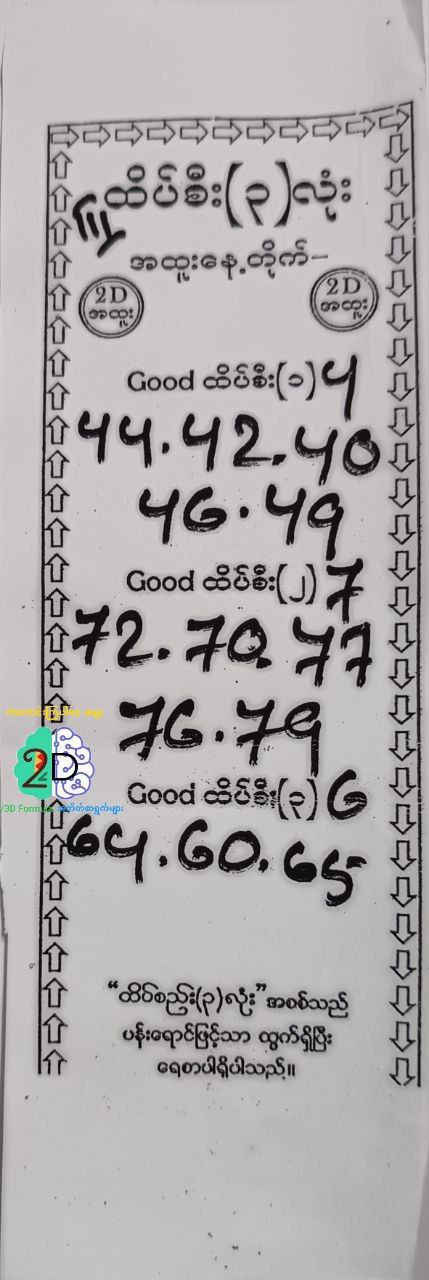 ထိပ်စီး(၃)လုံး
အထူးနေ့တိုက်-
2D
အထူး
2D
အထူး
Good ထိပ်စီး(၁) 4
44.42.40
46.49
Good ထိပ်စီး(၂) 7
72.70.77
76.79
2D
Good ထိပ်စီး(၃) 6
/3D Formula
64.60.65
“ထိပ်စည်း(၃)လုံး”အစစ်သည်
ပန်းရောင်ဖြင့်သာ ထွက်ရှိပြီး
ရေစာပါရှိပါသည်။